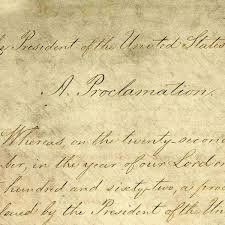 President of the United States
A Proclamation.
Whereas, on the twenty-second
ber, in the year of our Lord on
hundred and sixty-two, a proc
by the President of the Un